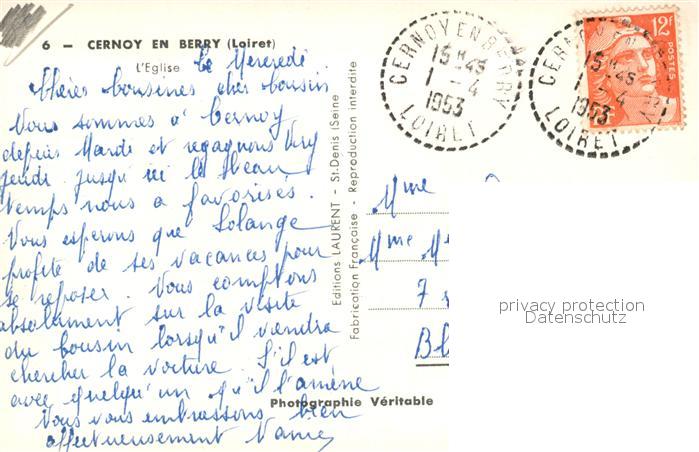 6 — CERNOY EN BERRY (Loiret)
L'Eglise
Le Mercredi
Chères cousines cher cousin
Nous sommes à Cernoy
depuis Mardi et regagnons Viry
jeudi jusqu'ici le beau
temps nous a favorisés.
Nous espérons que Solange
profite de ses vacances pour
se reposer. Nous comptons
absolument sur la visite
du cousin lorsqu'il viendra
chercher la voiture. S'il est
avec quelqu'un qu'il l'amène
Nous vous embrassons bien
affectueusement
Editions LAURENT - St-Denis (Seine
Fabrication Française - Reproduction interdite
Photographie Véritable
CERNOY EN BERRY
15 H 45
1 - 4
1953
LOIRET
CERNOY
15 H 45
4
1953
LOIRET
12F
POSTES
Mme
Mme M
7
Bl
privacy protection
Datenschutz